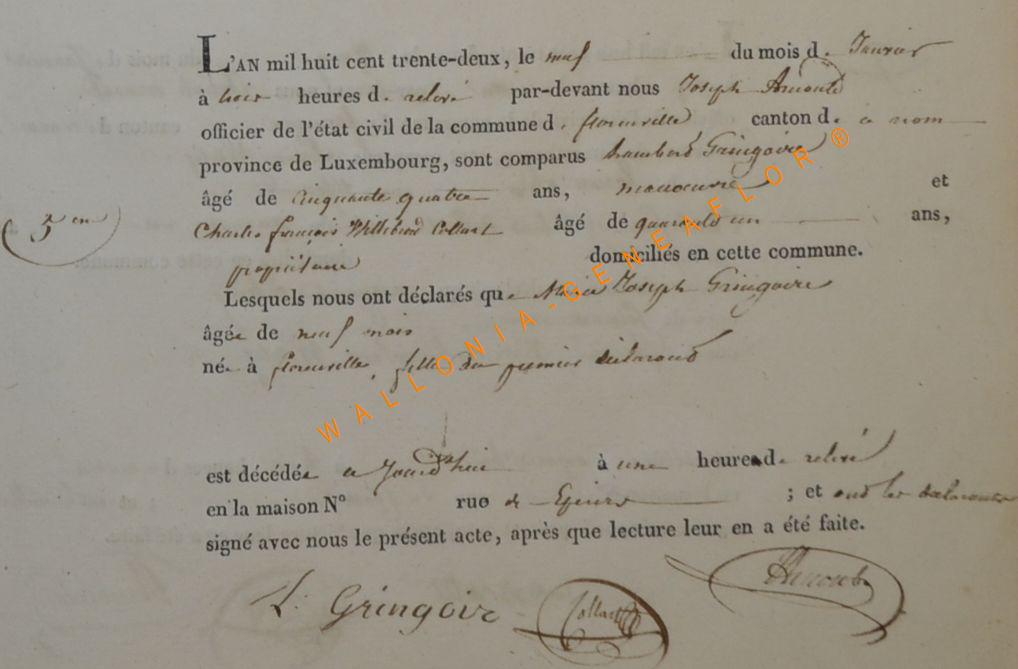 L'AN mil huit cent trente-deux, le neuf du mois d. Janvier
à trois heures d. relevé par-devant nous Joseph Arnould
officier de l'état civil de la commune d. florenville canton d. ce nom
province de Luxembourg, sont comparus Lambert Gringoire
âgé de cinquante quatre ans, manoeuvre et
5 em Charles françois Willebrord Collart âgé de quarante un ans,
propriétaire domiciliés en cette commune.
Lesquels nous ont déclarés que Marie Joseph Gringoire
âgée de neuf mois
née à florenville, fille du premier déclarant
est décédée ce Jourd'hui à une heure d. relevé
en la maison N° rue de ; et ont les déclarants
signé avec nous le présent acte, après que lecture leur en a été faite.
L. Gringoir Collart Arnould
WALLONIA-GENEAFLOR®